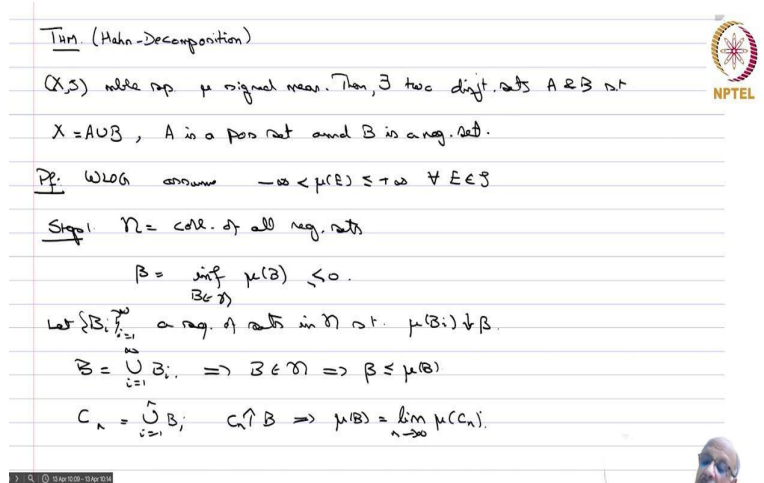 THM. (Hahn-Decomposition)
NPTEL
(X,S) mble sp μ signed meas. Then, ∃ two disjt. sets A & B s.t
X = A∪B, A is a pos set and B is a neg. set.
Pf: WLOG assume -∞ < μ(E) ≤ +∞ ∀ E ∈ S
Step1. η = coll. of all neg. sets
β = inf μ(B) ≤ 0.
B∈η
Let {Bi}∞i=1 a seq. of sets in η s.t. μ(Bi)↓β.
B = ∞∪i=1 Bi. ⇒ B∈η ⇒ β ≤ μ(B)
Cn = n∪i=1 Bi Cn↑B ⇒ μ(B) = lim n→∞ μ(Cn).
13 Apr 10:09 - 13 Apr 10:14